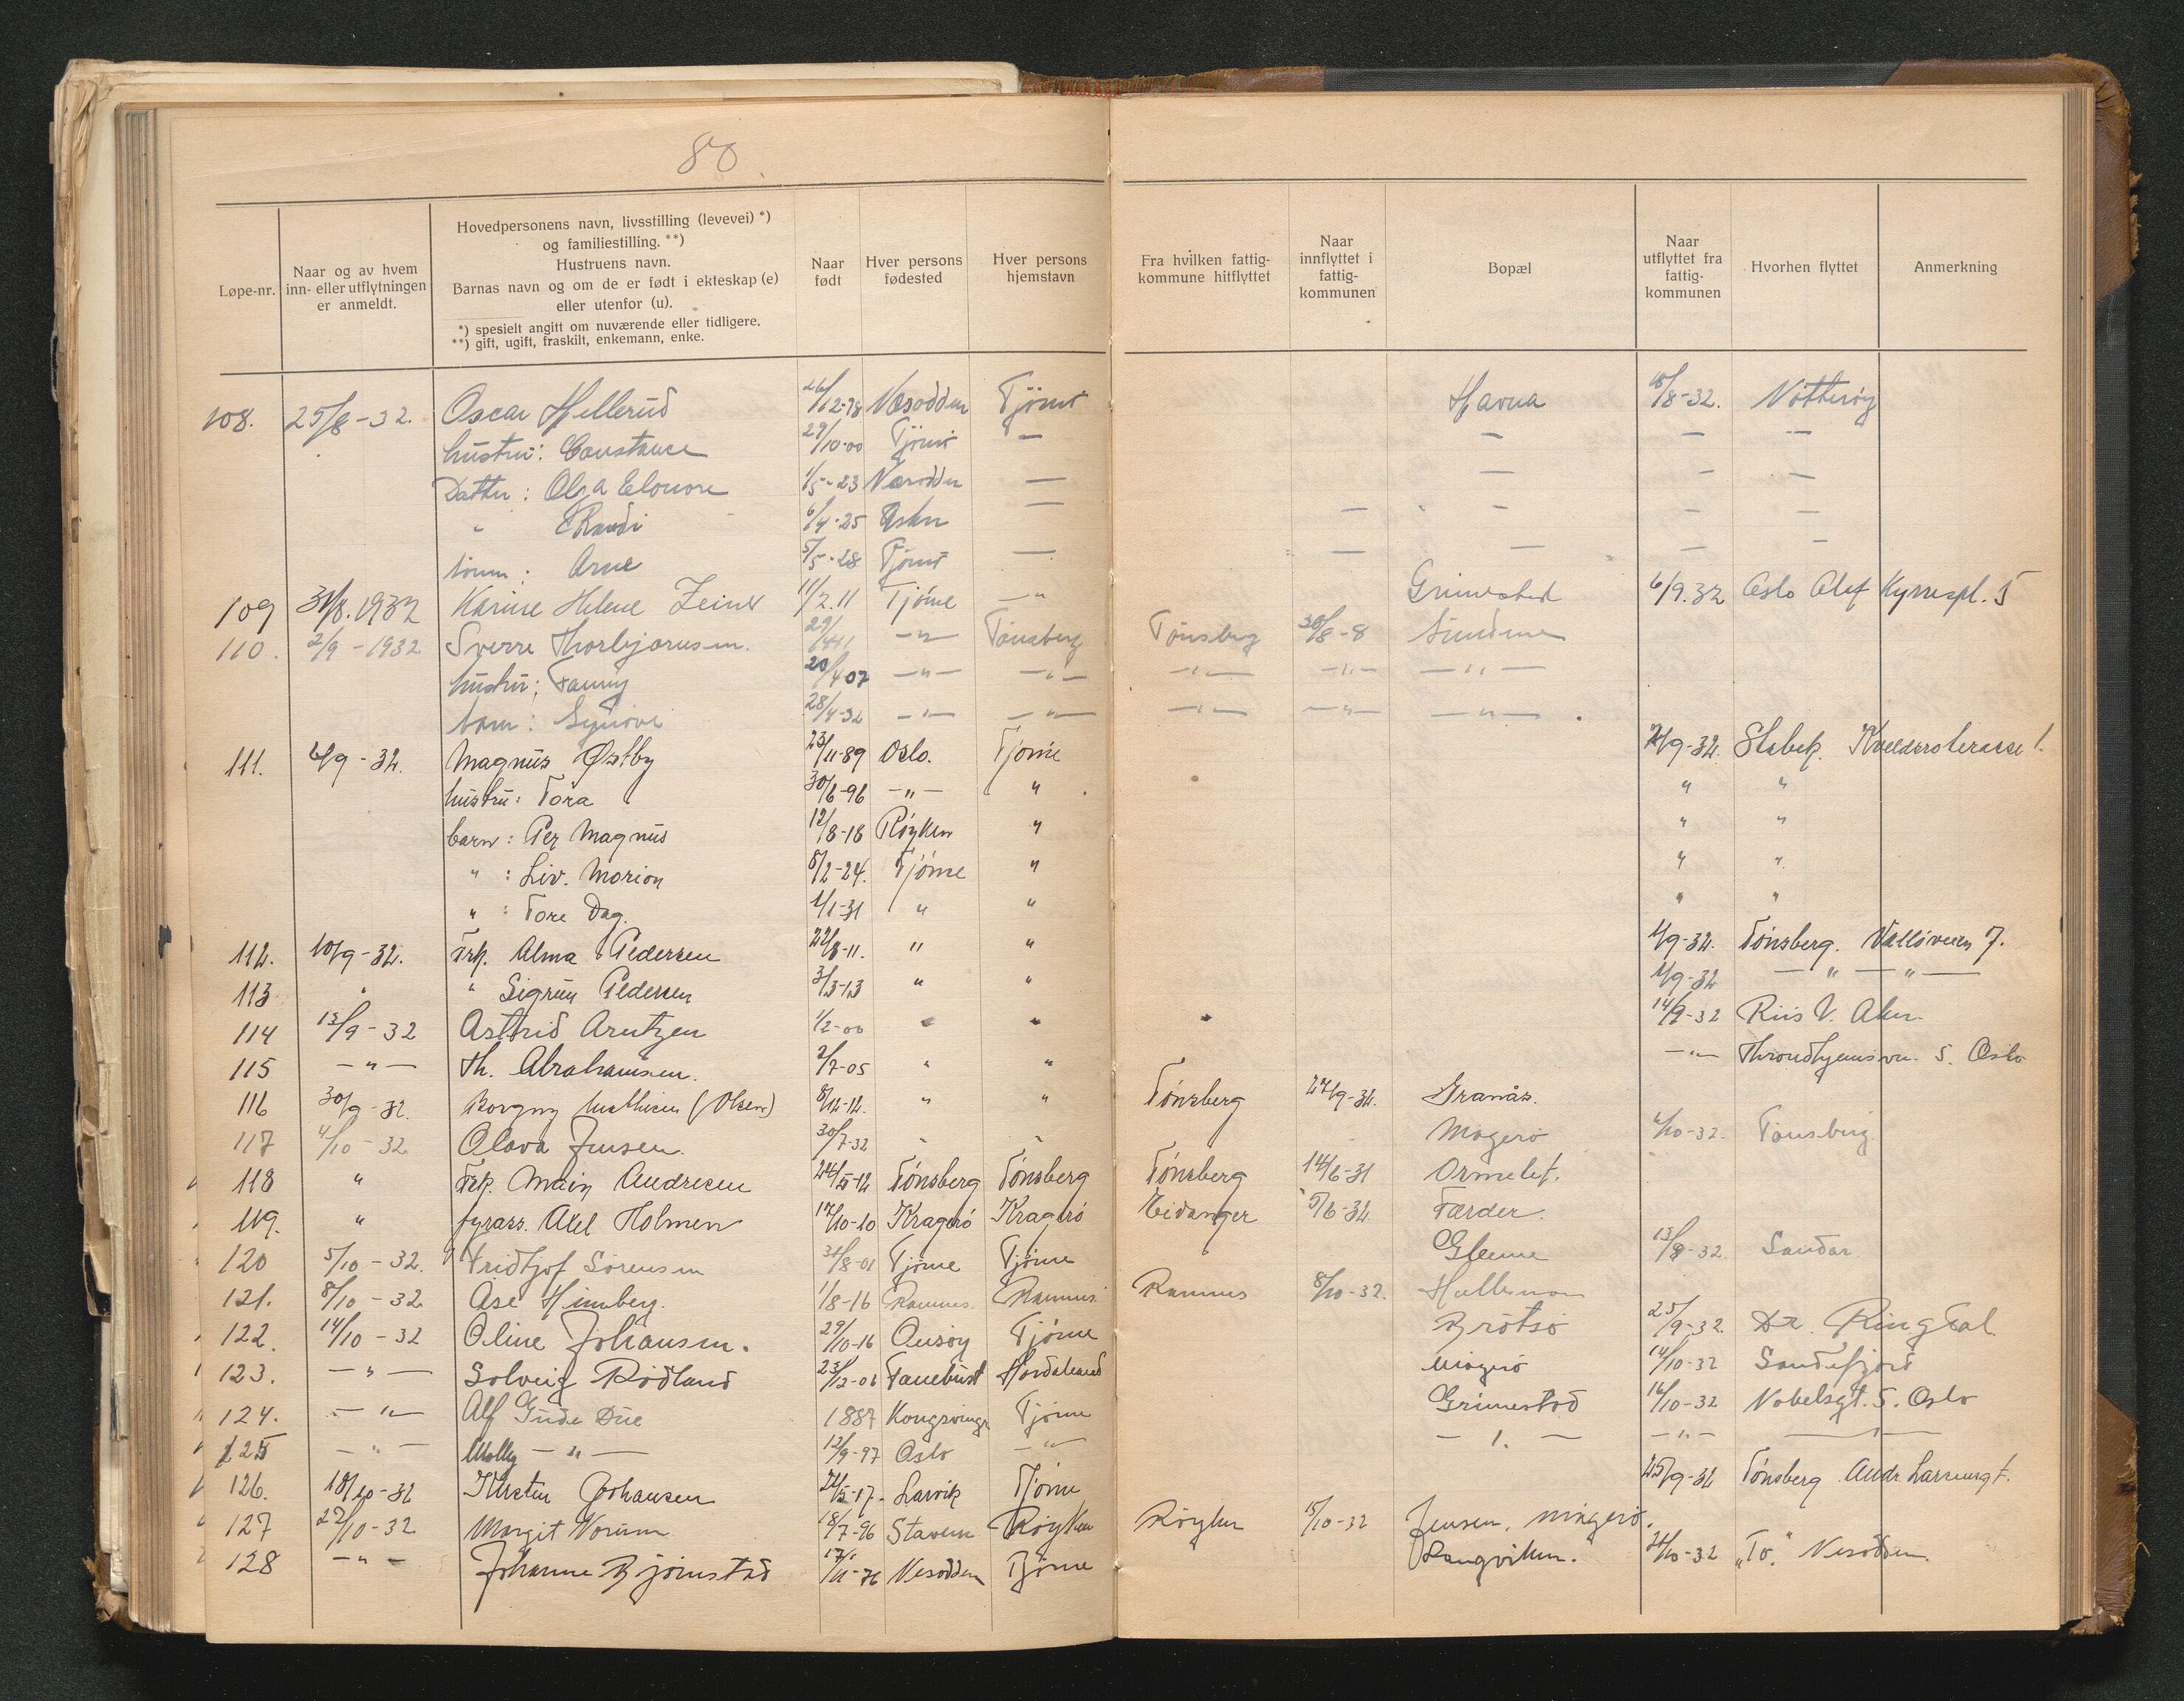 80.
Løpe-nr.
Naar og av hvem
inn- eller utflytningen
er anmeldt.
Hovedpersonens navn, livsstilling (levevei) *)
og familiestilling. **)
Hustruens navn.
Barnas navn og om de er født i ekteskap (e)
eller utenfor (u).
*) spesielt angitt om nuværende eller tidligere.
**) gift, ugift, fraskilt, enkemann, enke.
Naar
født
Hver persons
fødested
Hver persons
hjemstavn
Fra hvilken fattig-
kommune hitflyttet
Naar
innflyttet i
fattig-
kommunen
Bopæl
Naar
utflyttet fra
fattig-
kommunen
Hvorhen flyttet
Anmerkning
108. 25/8-32. Oscar Hellerud 26/12-78 Næsodden Tjöme Havna /8-32. Nötteröy
hustru: Constance 29/10-00 Tjöme — — — —
Datter: Olga Elonore 1/5-23 Næsodden — — — —
" Randi 6/4-25 Asker — — - — —
sønn: Arne 5/5-28 Tjöme — — — — —
109 31/8.1932 Karine Helene Zeiner 11/2.11 Tjöme —"— Grimestad 6/9.32 Oslo Olef Kyrrespl. 5
110. 2/9-1932 Sverre Thorbjørnsen. —"— Tønsberg Tønsberg 30/8-8 Sundene
hustru: Fanny 20/4 07 —"— —"— —"— —"— —"—
barn: Synöve 28/4-32 —"— —"— —"— —"— —"—
111. 6/9-32. Magnus Østby 23/11-89 Oslo. Tjöme /9-32. Stabek. Kveldsroterasse 1.
hustru: Tora 30/6-96 —"— " " "
barn: Per Magnus 12/8-18 Röyken " " "
" : Liv. Morion 8/2-24. Tjöme " " "
" : Tore Dag. 1/1-31 " " " "
112. 10/9-32. Frk. Alma Pedersen 22/8-11. " " 1/9-32. Tönsberg. Vallöveien 7.
113 " " Sigrun Pedersen 3/3-13 " " 1/9-32 —"—"—
114 13/9-32 Astrid Arntzen 1/2-00 " " " 14/9-32 Riis V. Aker
115 —"— Th. Abrahamsen. 2/7-05 " " —"— Throndhjemsvn. 5. Oslo
116 30/9-32. Borgny Mathisen (Olsen) 8/12-12. " " Tönsberg 27/9-32. Granås.
117 4/10-32 Olava Jensen. 30/7-32 " " Magerö /10-32. Tönsberg.
118 " Frk. Maiy Andresen 24/5-12 Tönsberg Tönsberg Tönsberg 14/6-31 Ormelet.
119. " fyrass. Axel Holmen 17/10-10 Kragerö Kragerö Eidanger 5/6-32 Færder.
120 5/10-32. Fridtjof Sörensen 31/8-01 Tjöme Tjöme Glenne 15/8-32. Sandar.
121. 8/10-32 Åse Himberg. 1/8-16 Ramnes. Ramnes. Ramnes 8/10-32.
122. 14/10-32 Oline Johansen. 29/10-16 Onsöy Tjöme Brötsö 25/9-32. Dr. Ringdal.
123. —"— Solveig Rödland 23/12-06 Hordaland Magerö 14/10-32 Sandefjord
124. —"— Alf Gude Due 1887 Kongsvinger Tjöme Grimestad 16/10-32 Nobelsgt. 5. Oslo
125 —"— Molly —"— 12/9-97 Oslo —"— —"— —"— —"—
126. 18/10-32 Kirsten Johansen 24/5-17. Larvik Tjöme 25/9-32 Tönsberg. Andr. Larsensgt.
127 22/10-32 Margit Norum 18/7-96 Stavern Röyken Röyken 15/10-32 Jensen, Magerö.
128 —"— Johanne Bjönstad 17/11-76 Nesodden Tjöme Rangviken. /10-32 „To." Nesodden.